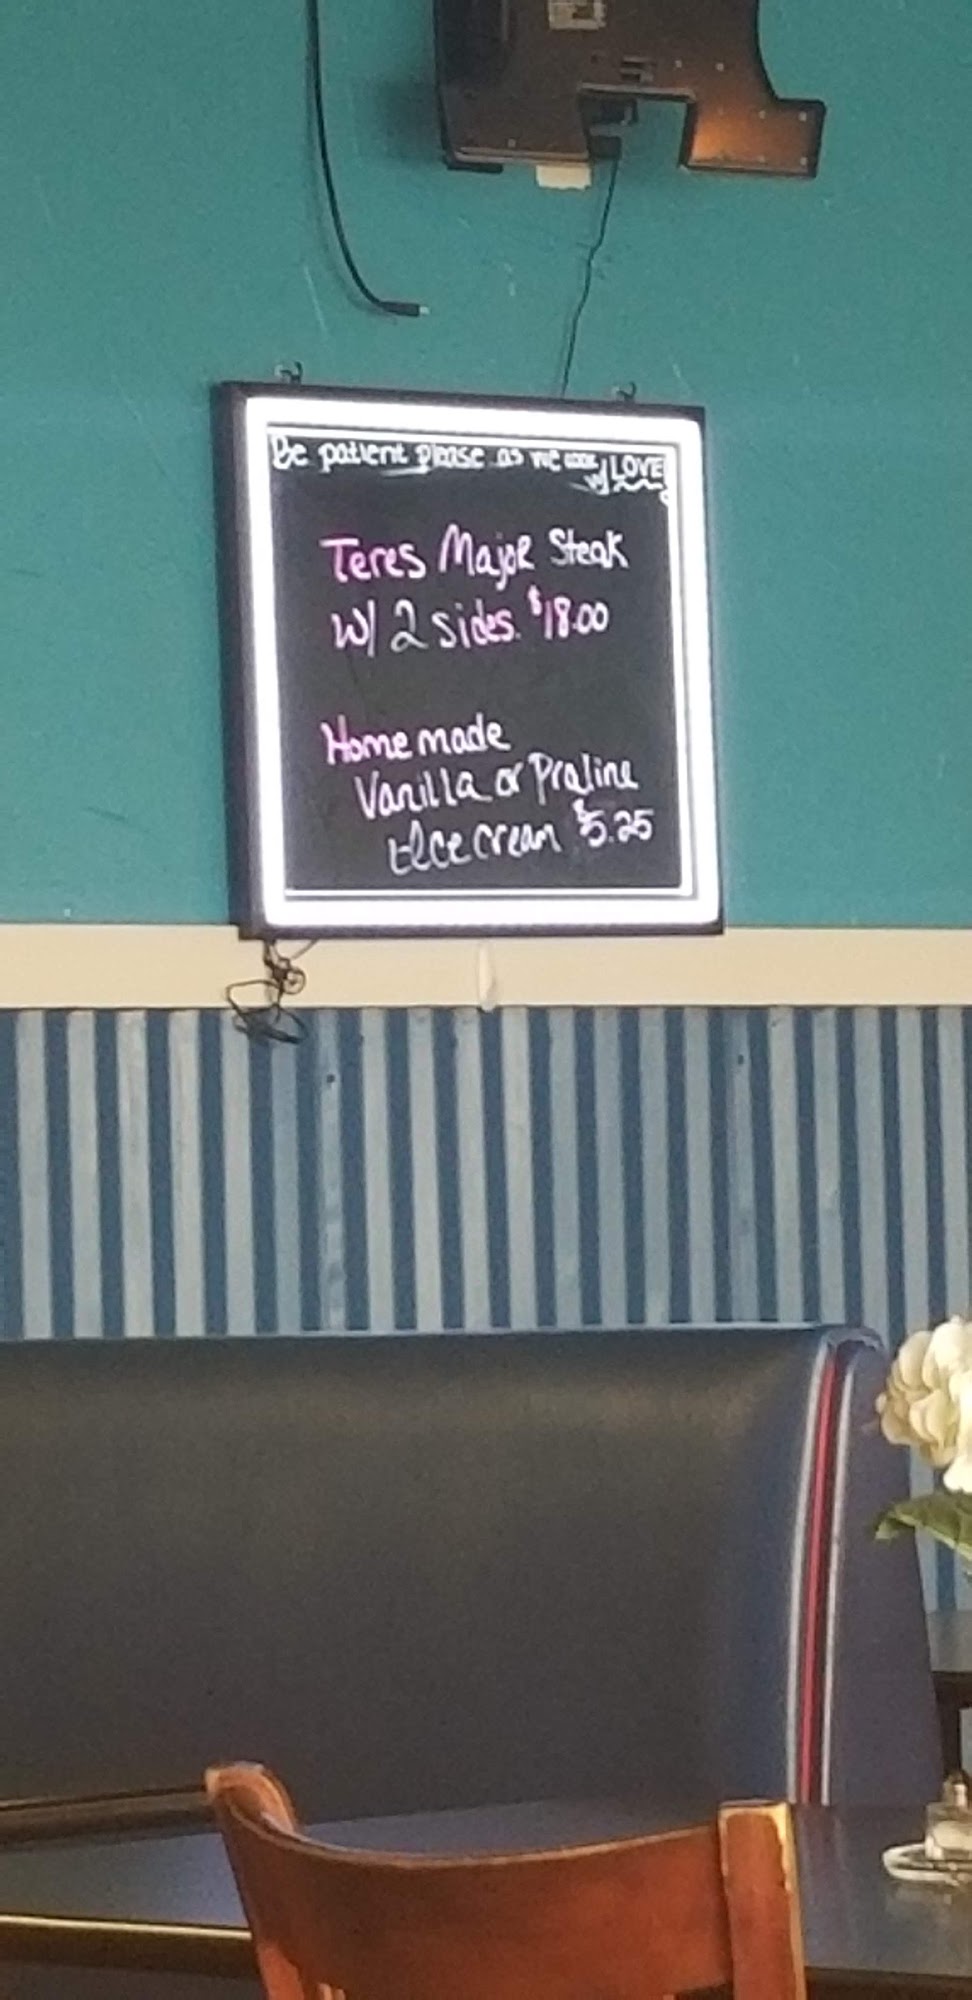 Be patient please as we cook
w/ LOVE
Teres Major Steak
W/ 2 sides. $18.00
Homemade
Vanilla or Praline
Ice cream $5.25